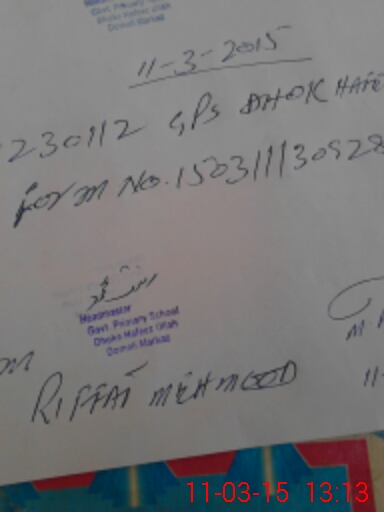 Govt. Primary School
Dhoke Hafeez Ullah
Domeli Markaz
11-3-2015
230112 GPS DHOK HAFE
Form No. 15031113092
Headmaster
Govt. Primary School
Dhoke Hafeez Ullah
Domeli Markaz
M
RIFFAT MEHMOOD
11-
11-03-15 13:13